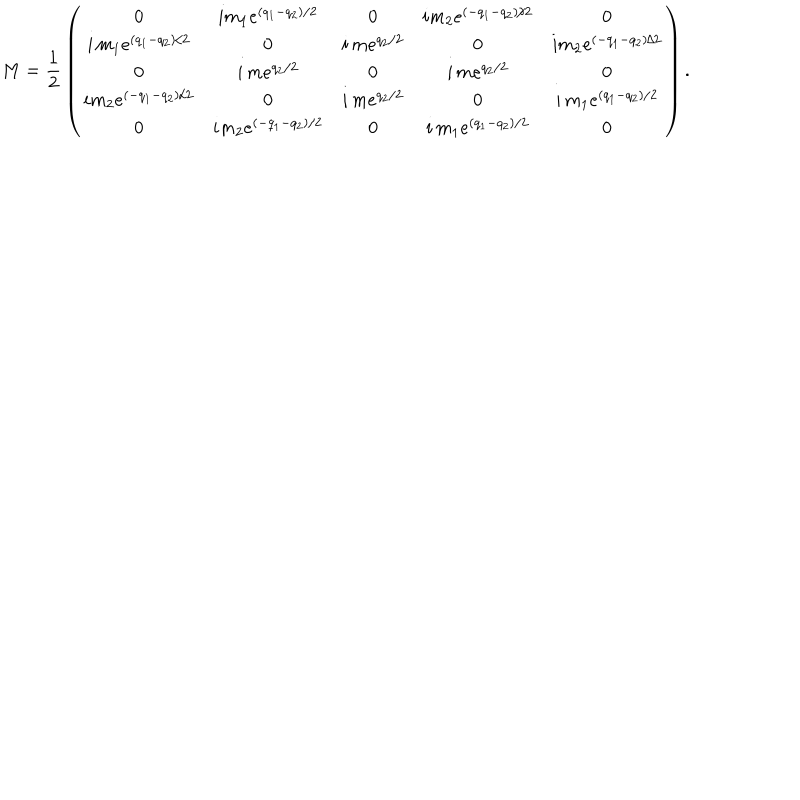 M = \frac{1}{2} \begin{pmatrix} 0 & im_1e^{(q_1-q_2)/2} & 0 & im_2e^{(-q_1-q_2)/2} & 0 \\ im_1e^{(q_1-q_2)/2} & 0 & ime^{q_2/2} & 0 & im_2e^{(-q_1-q_2)/2} \\ 0 & ime^{q_2/2} & 0 & ime^{q_2/2} & 0 \\ im_2e^{(-q_1-q_2)/2} & 0 & ime^{q_2/2} & 0 & im_1e^{(q_1-q_2)/2} \\ 0 & im_2e^{(-q_1-q_2)/2} & 0 & im_1e^{(q_1-q_2)/2} & 0 \end{pmatrix}.